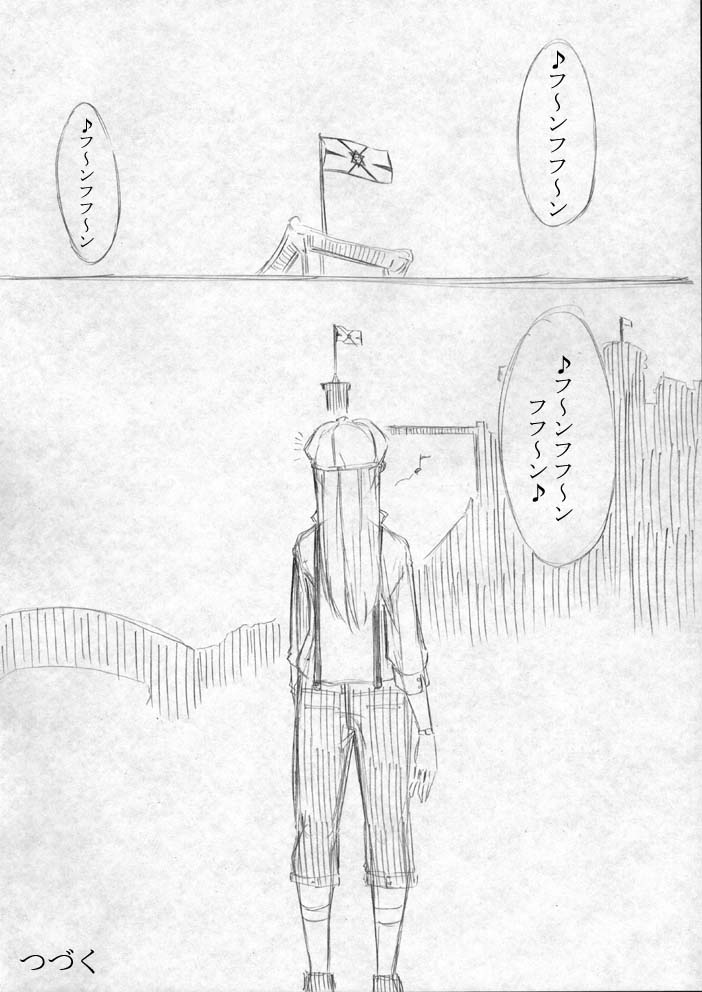 ♪フ～ンフフ～ン
♪フ～ンフフ～ン
♪フ～ンフフ～ン
フフ～ン♪
つづく